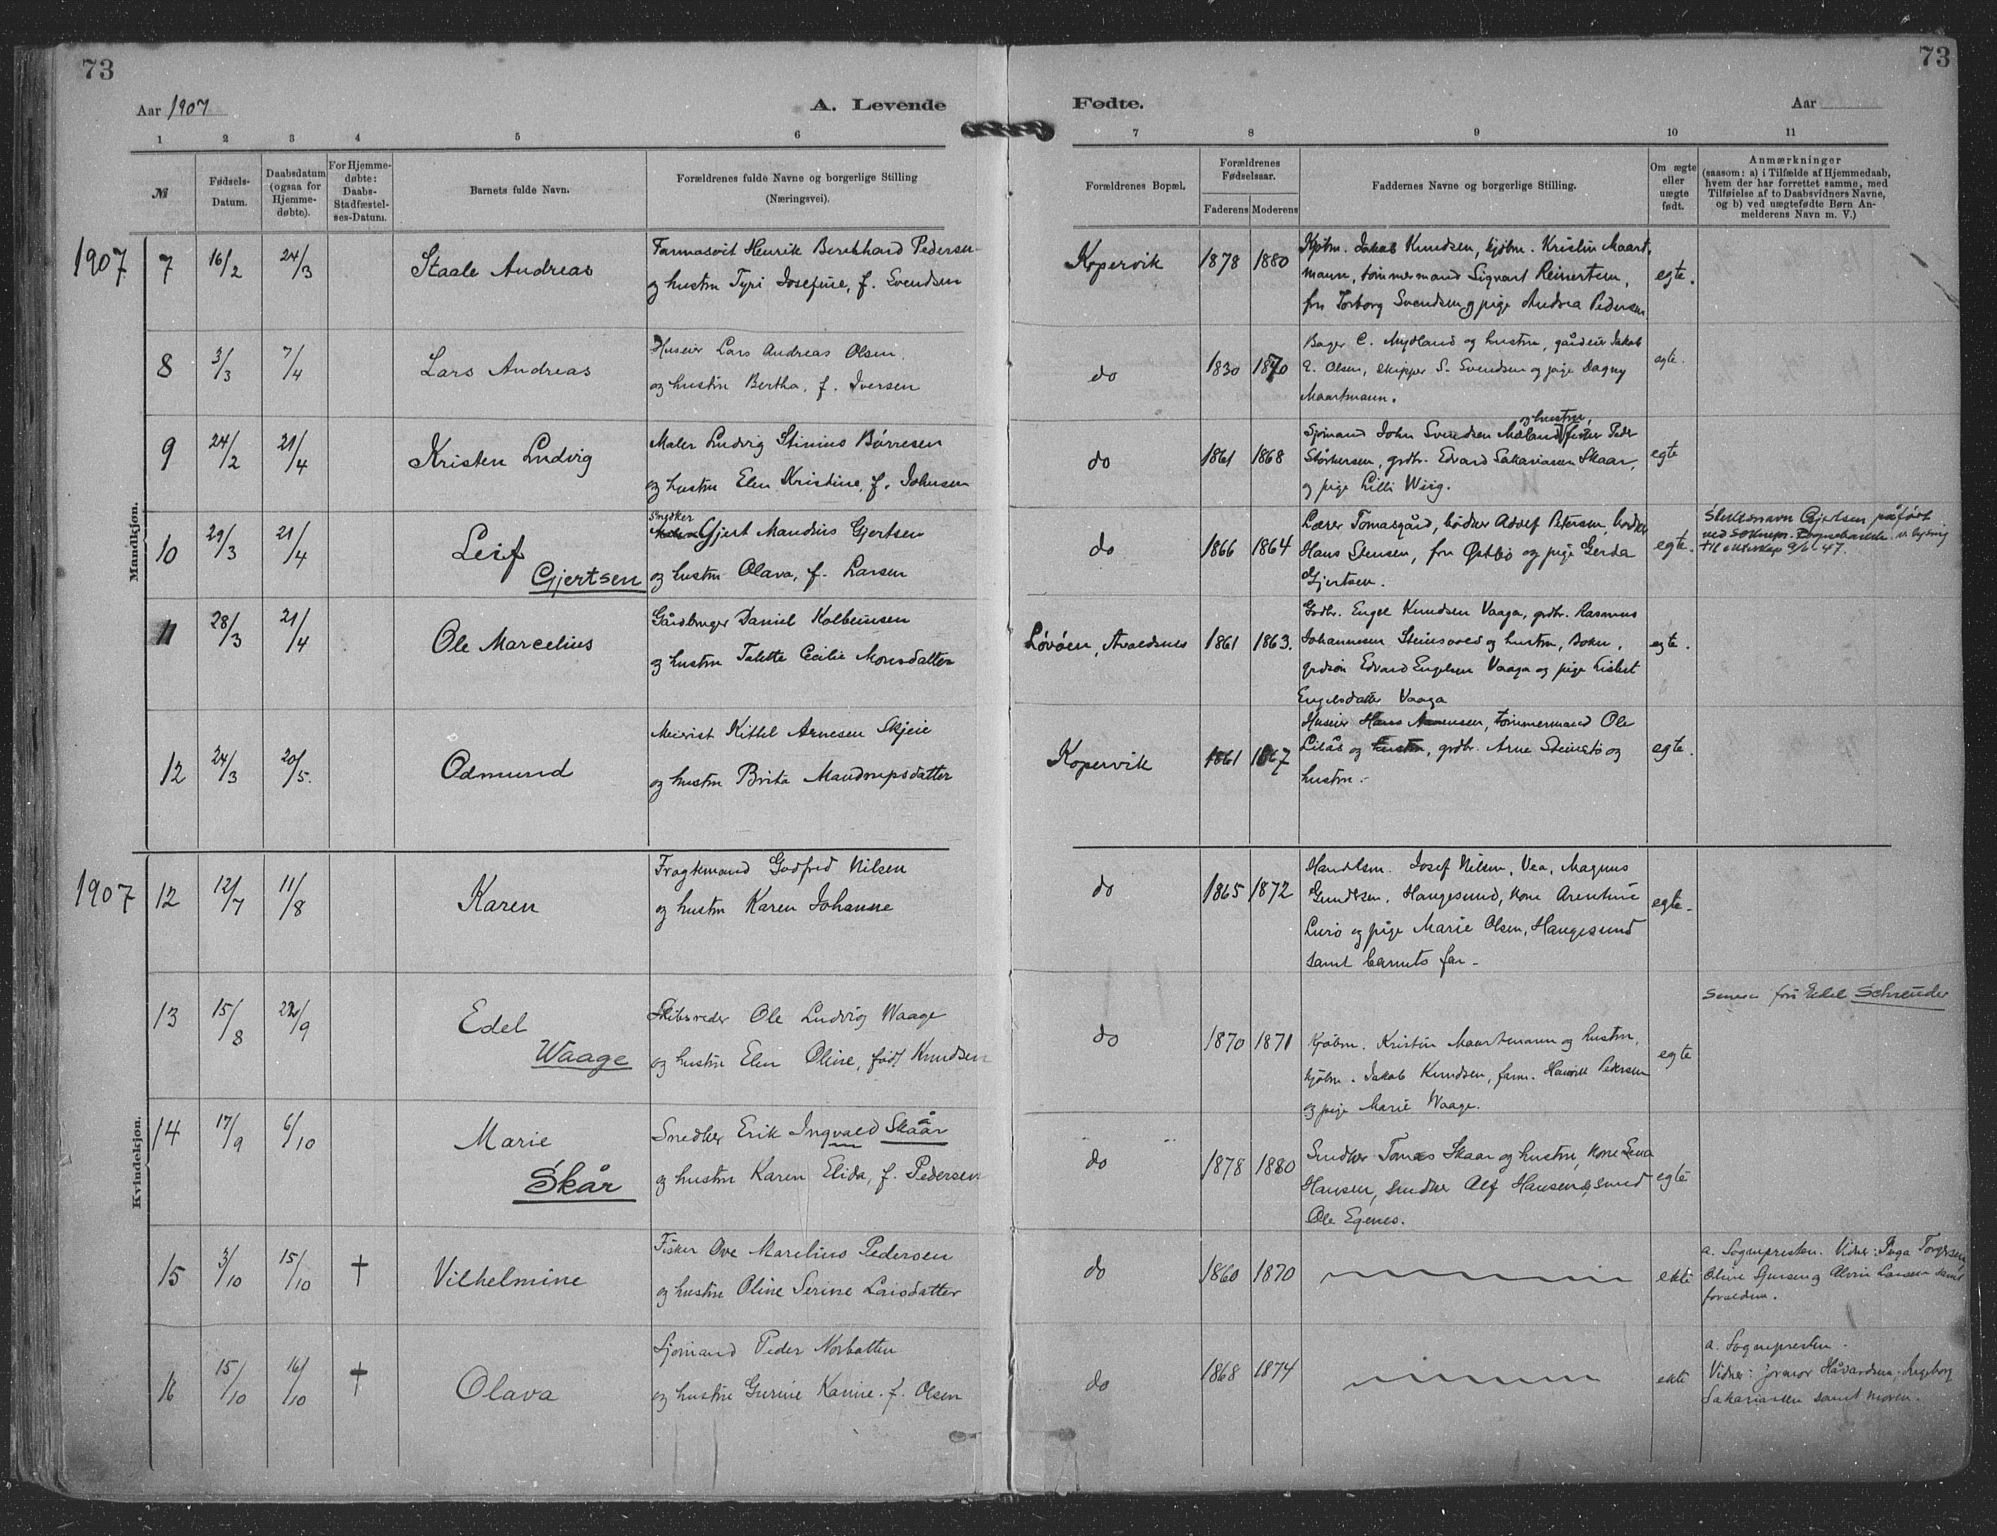 73
73
Aar 1907
A. Levende
Fødte.
Aar
1 2 3 4 5 6 7 8 9 10 11
№
Fødsels-Datum.
Daabsdatum (ogsaa for Hjemmedøbte).
For Hjemmedøbte: Daabs-Stadfæstelses-Datum.
Barnets fulde Navn.
Forældrenes fulde Navne og borgerlige Stilling (Næringsvei).
Forældrenes Bopæl.
Forældrenes Fødselsaar.
Faderens Moderens
Faddernes Navne og borgerlige Stilling.
Om ægte eller uægte født.
Anmærkninger
(saasom: a) i Tilfælde af Hjemmedaab,
hvem der har forrettet samme, med
Tilføielse af to Daabsvidners Navne,
og b) ved uægtefødte Børn An-
melderens Navn m. V.)
Mandkjøn.
1907 7 16/2 24/3 Staale Andreas
Farmasøit Henrik Bernhard Pedersen
og hustru Tyri Josefine, f. Svendsen
Kopervik 1878 1880
Kjøbm. Jakob Knudsen, kjøbm. Kristin Maart
mann, tømmermand Sigvart Reinertsen,
fru Torborg Svendsen og pige Andrea Pedersen
egte.
8 3/3 7/4 Lars Andreas
Huseier Lars Andreas Olsen
og hustru Bertha, f. Iversen
do 1830 1870
Bager C. Mydland og hustru, gårdeier Jakob
E. Olsen, skipper S. Svendsen og pige Dagny
Maartmann.
egte.
9 24/2 21/4 Kristen Ludvig
Maler Ludvig Stinius Børresen
og hustru Elen Kristine, f. Johnsen
do 1861 1868
og hustru,
Sjømand John Svendsen Mæland, fisker Peder
Størkersen, grdbr. Edvard Sakariassen Skaar,
og pige Lilli Wiig.
egte
10 29/3 21/4 Leif
Gjertsen
Snedker
Gjert Mandius Gjertsen
og hustru Olava, f. Larsen
do 1866 1864
Lærer Tomasgård, bødker Adolf Petersen, bødker
Hans Stensen, fru Østbø og pige Gerda
Gjertsen.
egte.
Slektsnavn Gjertsen påført
til ekteskap 9/6 47.
11 28/3 21/4 Ole Marcelius
Gårdbruger Daniel Kolbeinsen
og hustru Talette Cecilie Monsdatter
Løvøen, Avaldsnes 1861 1863.
Grdbr. Engel Knudsen Vaaga, grdbr. Rasmus
Johannesen Steinsvold og hustru, Bokn,
grdsøn Edvard Engelsen Vaaga og pige Lisbet
Engelsdatter Vaaga
egte.
12 24/3 20/5. Odmund
Meierist Kittel Arnesen Skjeie
og hustru Brita Mandrupsdatter
Kopervik 1861 1867
Huseier Hans Aanensen, tømmermand Ole
Liaås og hustru, grdbr. Arne Steinstø og
hustru.
egte.
Kvindekjøn.
1907 12 12/7 11/8 Karen
Fragtemand Godfred Nilsen
og hustru Karen Johanne
do 1865 1872
Handlsm. Josef Nilsen, Vea, Magnus
Gundersen, Haugesund, kone Arentine
Lurø og pige Marie Olsen, Haugesund
samt barnets far.
egte.
13 15/8 22/9 Edel
Waage
Skibsreder Ole Ludvig Waage
og hustru Elen Oline, født Knudsen
do 1870 1871
Kjøbm. Kristin Maartmann og hustru,
kjøbm. Jakob Knudsen, farm. Henrik Pedersen
og pige Marie Waage.
egte
Senere fru Edel Schreuder
14 17/9 6/10 Marie
Skår
Snedker Erik Ingvald Skaar
og hustru Karen Elida, f. Pedersen
do 1878 1880
Snedker Tomas Skaar og hustru, kone Lena
Hansen, snedker Alf Hansen, smed
Ole Egenes.
egte
15 3/10 15/10 † Vilhelmine
Fisker Ove Marelius Pedersen
og hustru Oline Serine Larsdatter
do 1860 1870
ekte
a. Sognepresten. Vidner: Inga Torgersen,
Oline Jensen og Alvin Larsen samt
foreldrene.
16 15/10 16/10 † Olava
Sjømand Peder Norbotten
og hustru Gurine Kanine f. Olsen
do 1868 1874
ekte
a. Sognepresten.
Vidner: jormor Håvardsen, Ingeborg
Sakariassen samt moren.